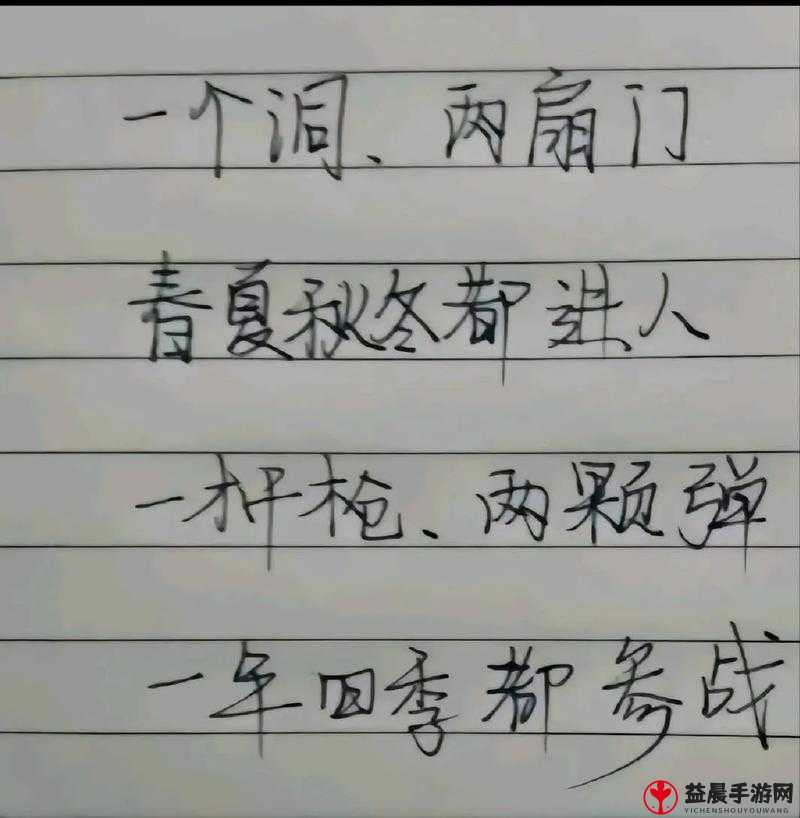 一个洞、两扇门
春夏秋冬都进人
一杆枪、两颗弹
一年四季都参战
益晨手游网
YICHENSHOUYOUWANG